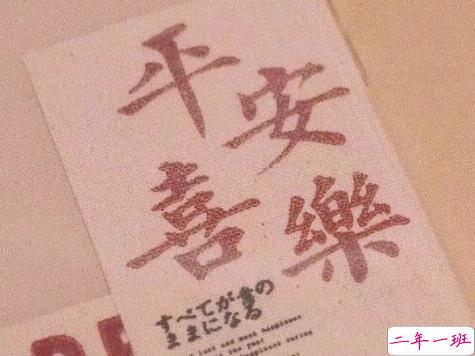 平安
喜樂
すべてが倉の
ままになる
二年一班